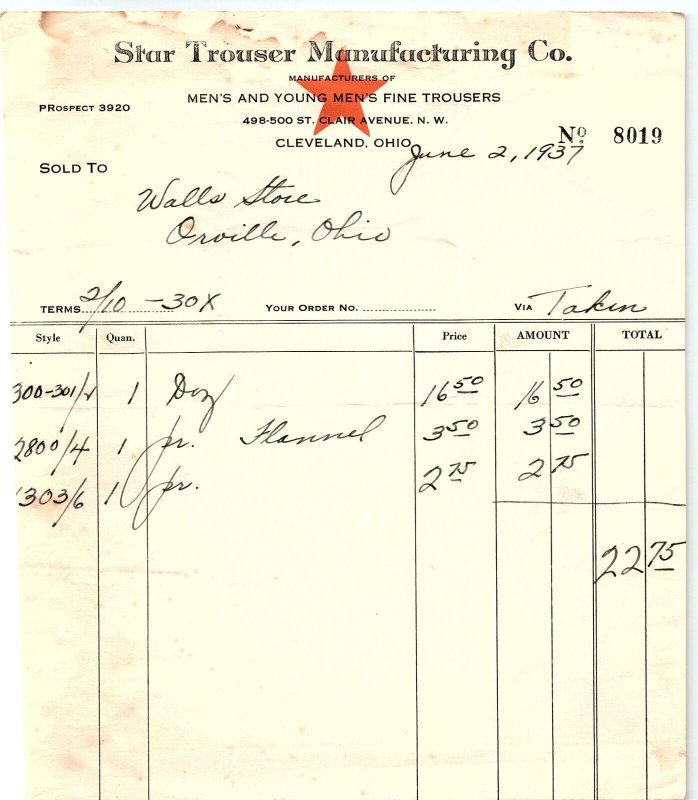 Star Trouser Manufacturing Co.
MANUFACTURERS OF
MEN'S AND YOUNG MEN'S FINE TROUSERS
PROSPECT 3920
498-500 ST. CLAIR AVENUE, N. W.
CLEVELAND, OHIO
No. 8019
June 2, 1937
SOLD TO
Walls Store
Orville, Ohio
TERMS 2/10 - 30X YOUR ORDER NO. VIA Taken
Style Quan. Price AMOUNT TOTAL
300-301/2 1 Doz 16 50 16 50
2800/4 1 pr. Flannel 3 50 3 50
1303/6 1 pr. 2 75 2 75
22 75